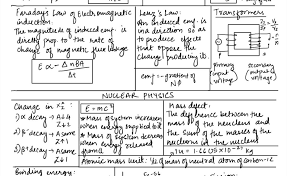 Faraday's Law of Electromagnetic
induction.
The magnitude of induced emf is
directly prop. to the rate of
change of magnetic flux linkage
E α -Δ NBA
Δt
Lenz's Law:
An induced emf is
in a direction so as
to produce effects
that oppose the
change producing it.
emf = -gradient of
Nφ
Transformers
Primary
input
voltage
Secondary
output
voltage
NUCLEAR PHYSICS
Change in
1) α decay → A-4
Z-2
2) β⁻ decay → A same
Z+1
3) β⁺ decay → A same
Z-1
E=mc²
* Mass of system increases
when energy supplied to it
* Mass of system decreases
when energy released
from it
Mass defect:
The difference between the
mass of the nucleus and
the sum of the masses of the
nucleons in the nucleus
Atomic mass unit: 1/12 of mass of neutral atom of carbon-12
Binding energy: